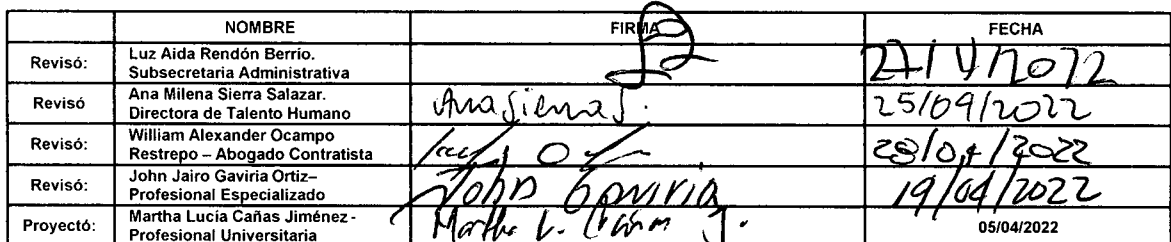 NOMBRE FIRMA FECHA
Revisó: Luz Aida Rendón Berrío.
Subsecretaria Administrativa 27/V/2022
Revisó Ana Milena Sierra Salazar.
Directora de Talento Humano Ana Sierra S. 25/04/2022
Revisó: William Alexander Ocampo
Restrepo – Abogado Contratista 28/04/2022
Revisó: John Jairo Gaviria Ortiz–
Profesional Especializado John Gaviria 19/04/2022
Proyectó: Martha Lucía Cañas Jiménez -
Profesional Universitaria Martha L. Cañas J. 05/04/2022